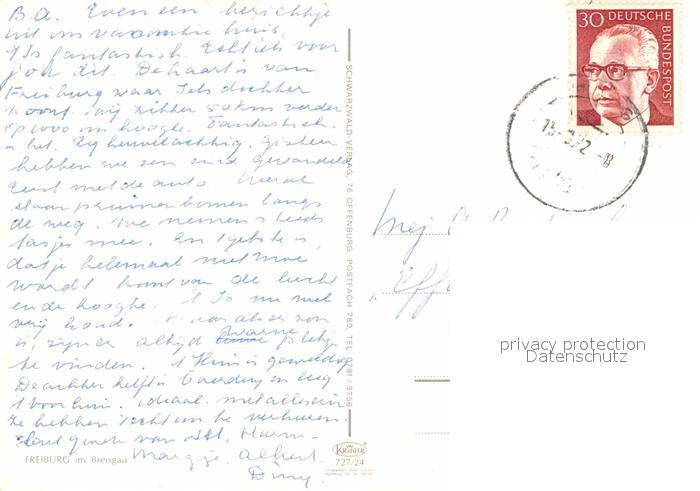 B.A. Even een berichtje
uit ons vacantie huis.
't Is fantastisch. Echt iets voor
jou Rit. De kaart is van
Freiburg waar Iets dochter
woont. Wij zitten 50 km verder
op 1000 m hoogte. Fantastisch
is het. Erg heuvelachtig. Gisteren
hebben we een eind gewandeld
Eerst met de auto. Overal
staan pruimenbomen langs
de weg. We nemen steeds
tasjes mee. En 't gekste is,
dat je helemaal niet moe
wordt komt van de lucht
en de hoogte. 't Is nu wel
vrij koud. maar als er zon
is, zijn er altijd warme plekjes
te vinden. 't Huis is geweldig
De achter helft is boerderij en leeg
't voorhuis. ideaal. met alles erin
Ze hebben 't echt om te verhuren.
Hart. groeten van
Margje, Albert
Diny.
FREIBURG im Breisgau
SCHWARZWALD-VERLAG, 76 OFFENBURG, POSTFACH 780, TEL. 0781/3756
KRÜGER
727/24
30 DEUTSCHE
BUNDESPOST
Mej.
Eff
privacy protection
Datenschutz